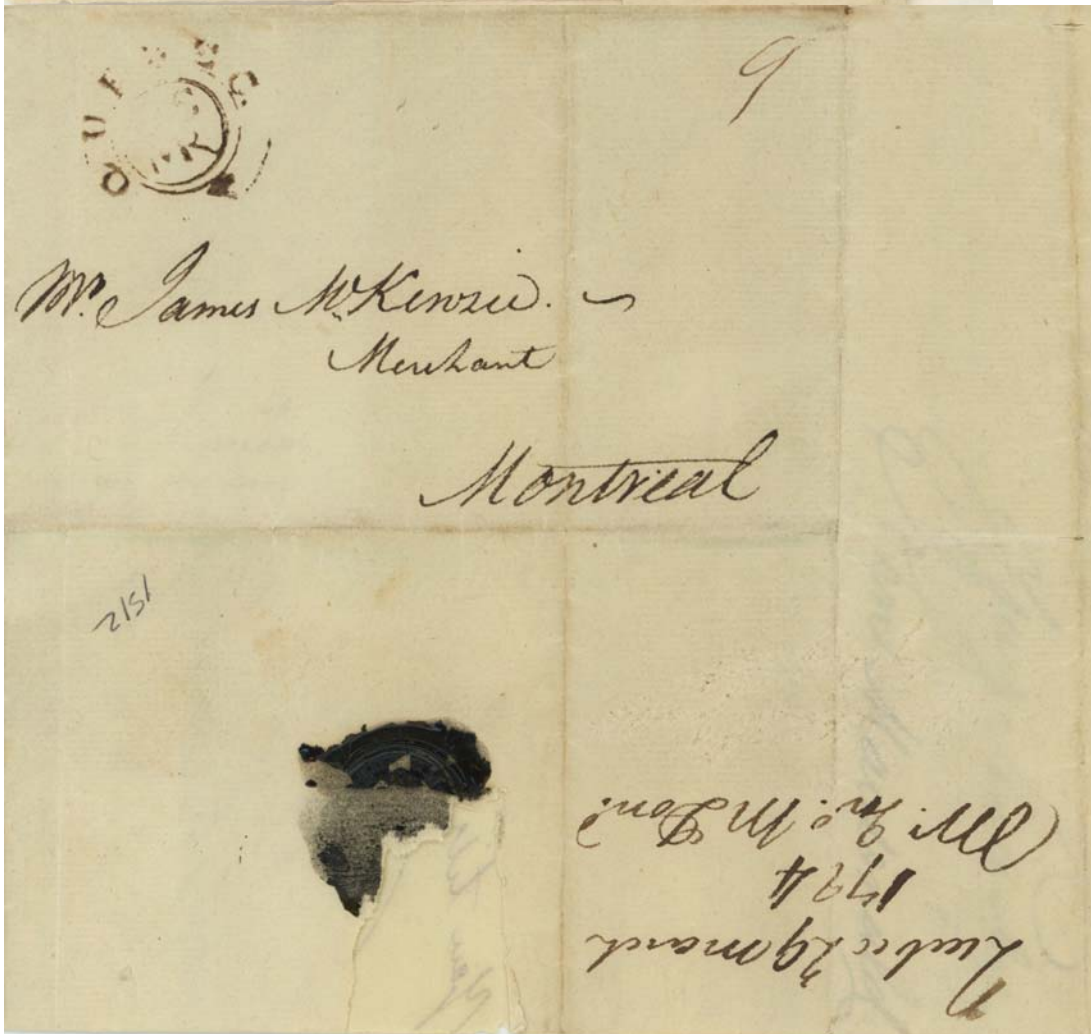 QUEBEC
9
Mr. James McKenzie.
Merchant
Montreal
Quebec 29 march
Mr. Jno. McDond